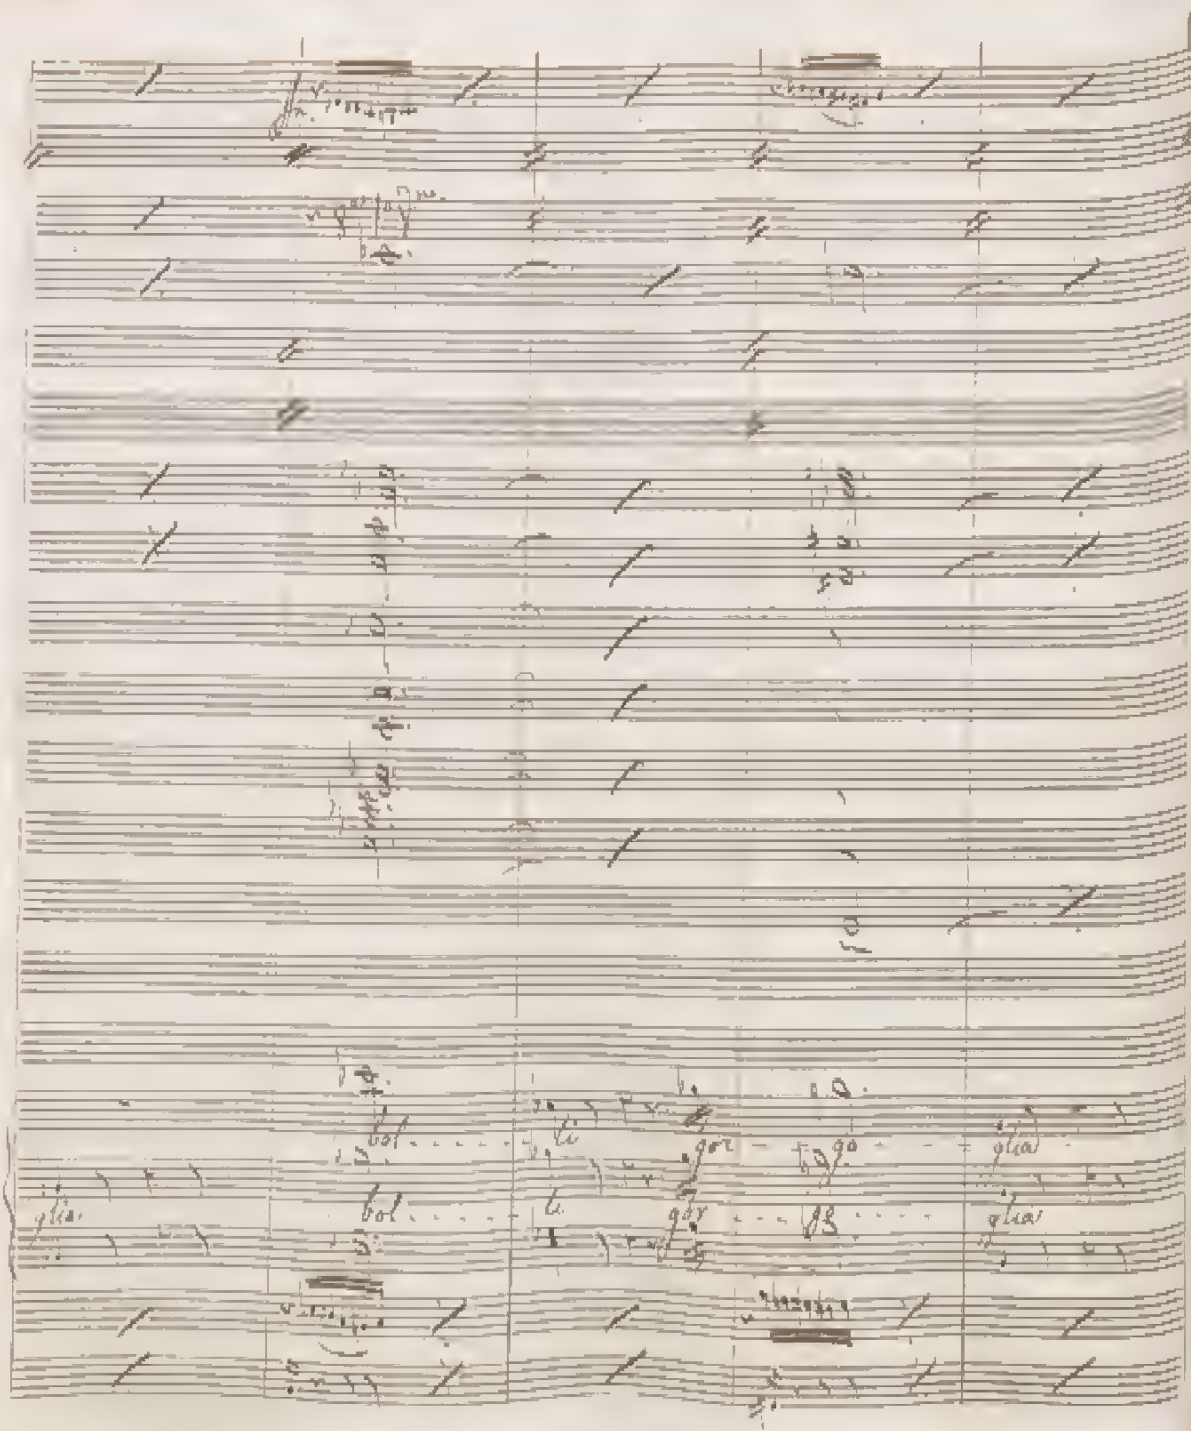 bol - - - - - - - li gor - - go - - - - glia
glia bol - - - - - - - li gor - - - go - - - - glia